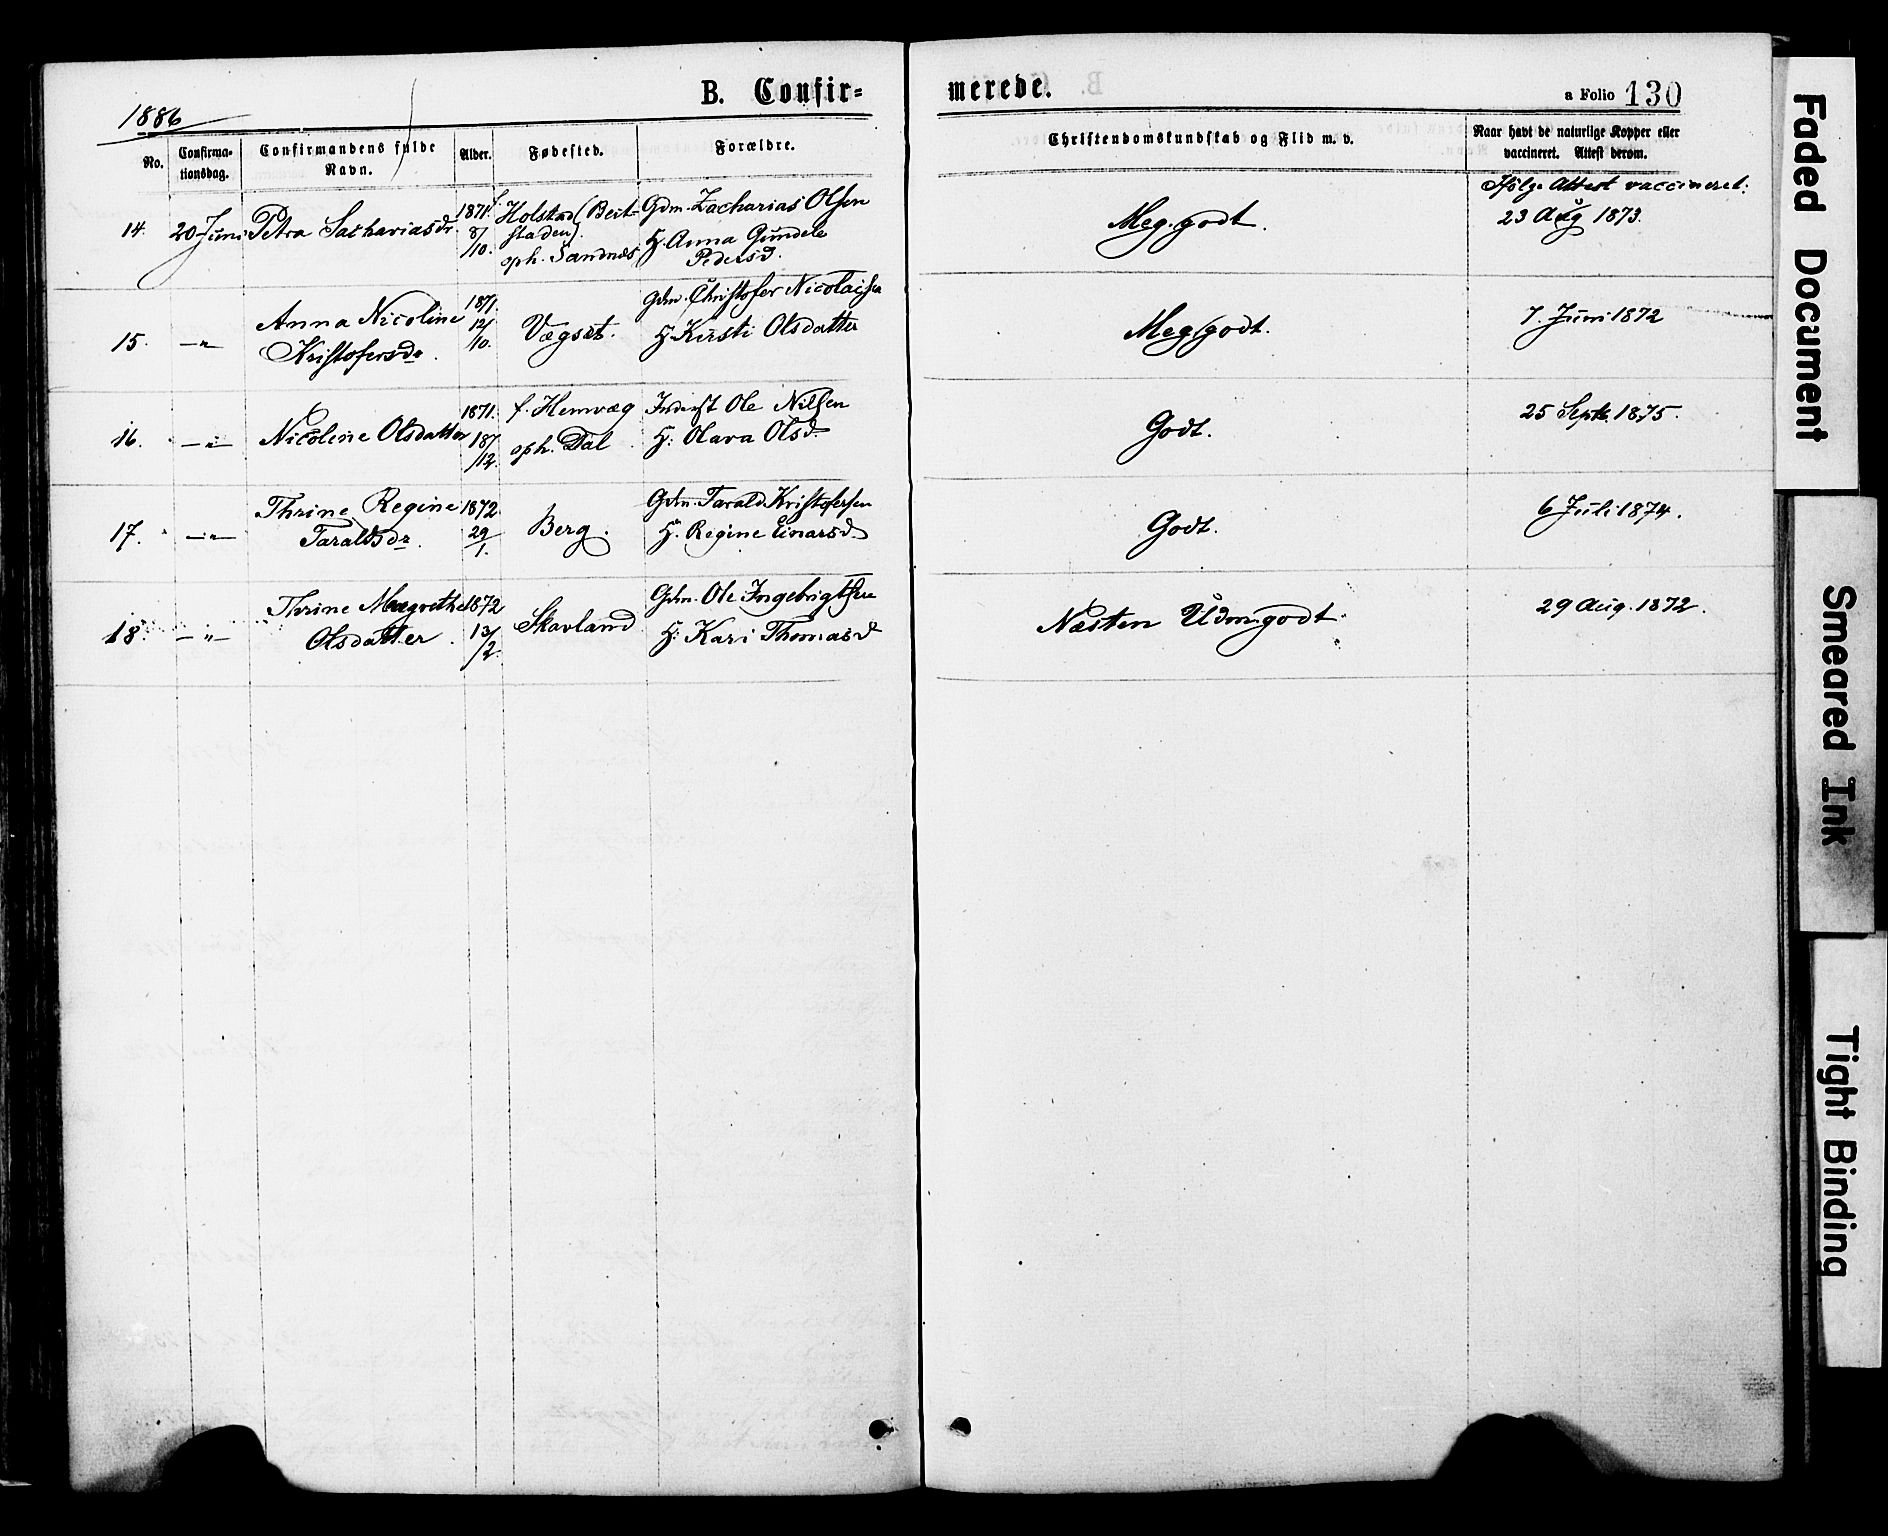 B. Confir=
merede.
a Folio 130
1886
No.
Confirma-
tionsdag.
Confirmandens fulde
Navn.
Alder.
Fødested.
Forældre.
Christendomskundskab og Flid m. v.
Naar havt de naturlige Kopper eller
vaccineret. Attest derom.
14. 20 Juni Petra Sachariasdr.
1871. 8/10.
f. Holstad (Beit-
staden).
oph. Sandnes
Gdm. Zacharias Olsen
H. Anna Gundele
Pedersd.
Meg. godt.
Ifølge Attest vaccineret:
23 Aug 1873.
15. —"—
Anna Nicoline
Kristofersdr.
1871. 12/10.
Vægset.
Gdm. Christofer Nicolaisen
H. Kirsti Olsdatter
Meg. godt.
7. Juni 1872
16. —"—
Nicoline Olsdatter
1871. 18/12.
f. Hemvæg
oph. Dal
Inderst Ole Nilsen
H: Olava Olsd.
Godt.
25 Septb. 1875.
17. —"—
Thrine Regine
Taraldsdr.
1872 29/1.
Berg.
Gdm. Tarald Kristofersen
H. Regine Einarsd.
Godt.
6 Juli 1874.
18. —"—
Thrine Margrethe
Olsdatter.
1872 13/2.
Skavland
Gdm. Ole Ingebrigtsen
H: Kari Thomasd
Næsten Udm. godt.
29 Aug. 1872.
Faded Document
Smeared Ink
Tight Binding